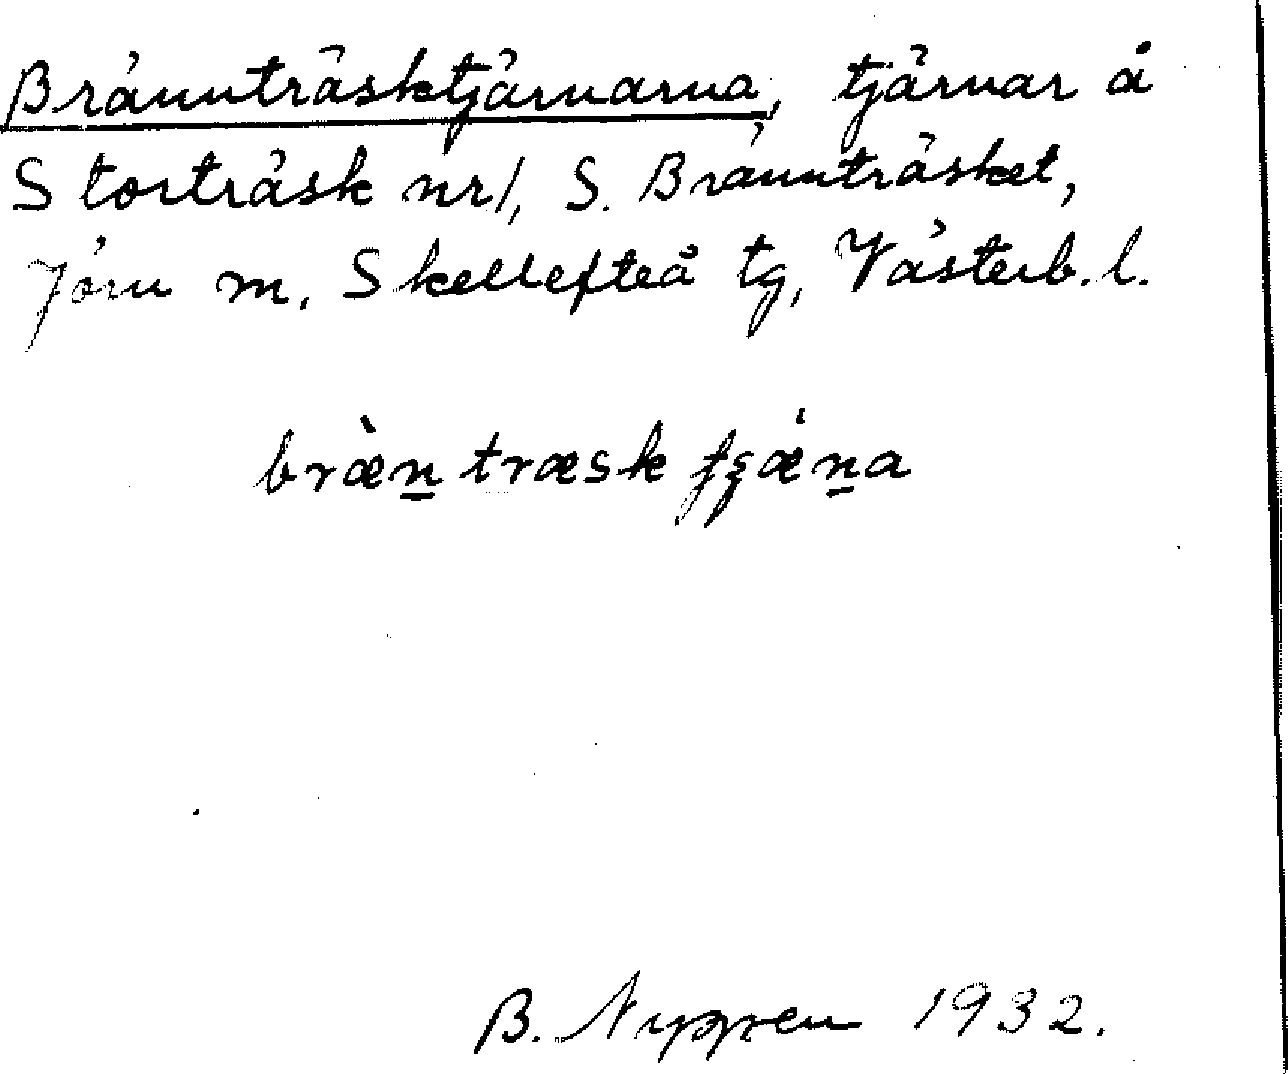 Brännträsktjärnarna, tjärnar å
Storträsk nr 1, S. Brännträsket,
Jörn m. Skellefteå tg, Västerb. l.
bræ̀n̲træsk
B. Nygren 1932.